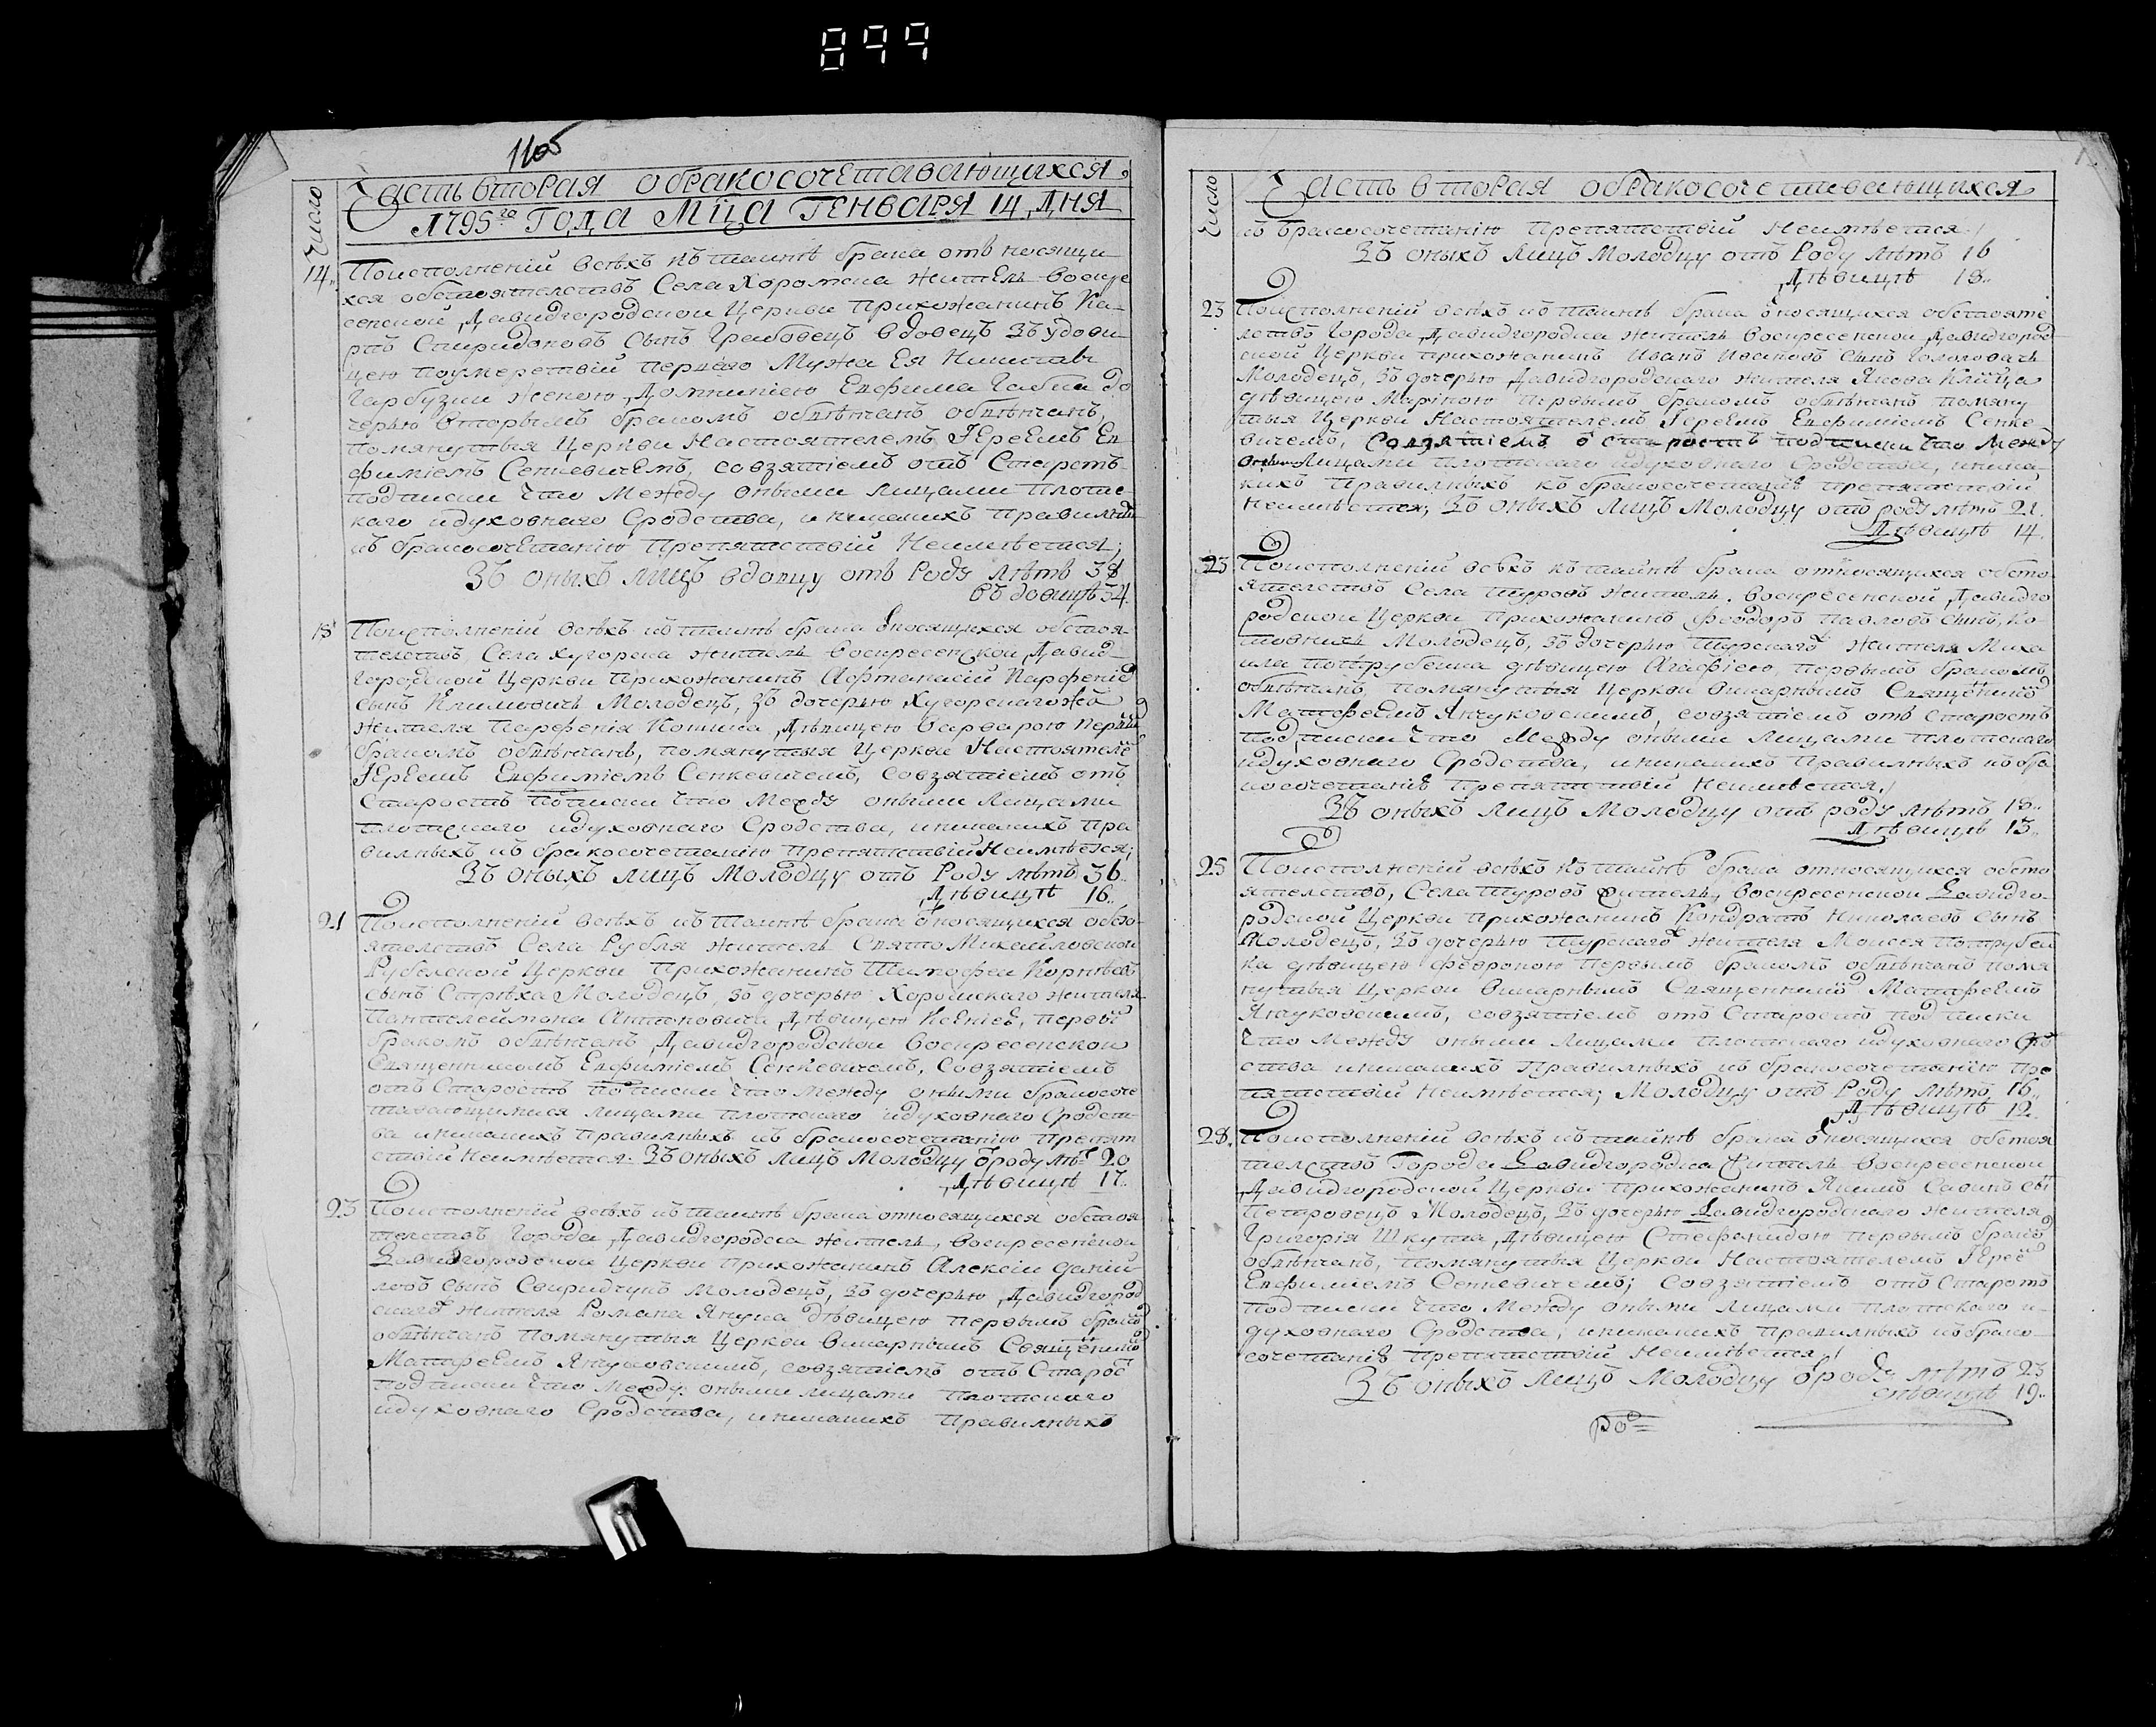 899
1105
Число
Часть вторая обракосочетавающихся
1795го Года Мца Генваря 14 дня
14. Поисполненій всѣхъ къ таинѣ брака отъ носящи
хся обстоятелствъ Села Хоромска житель воскре
сенской Давидгородской Церкви Прихожанинъ Ка-
рпъ Спиридоновъ Сынъ Грабовецъ вдовецъ Зъ удови
цею поумертвій перваго Мужа Ея Никиты
Гарбузы женою Домникіею Евфима Габца до
черью вторымъ бракомъ обвѣнчанъ обвѣнчанъ,
помянутыя Церкви Настоятелемъ Іереемъ Ев
фиміемъ Сенкевичемъ, совзятіемъ отъ Старостъ
подписки что Между оными лицами плотс
каго идуховнаго Сродства, и никакихъ правилныхъ
къ бракосочетанію Препятствій Неимѣется;
Зъ оныхъ лицъ вдовцу отъ Роду лѣтъ 38
въдовицѣ 34.
18 Поисполненій всѣхъ къ таинѣ брака ѿносящихся обстоя
телствъ, Села Хугорска житель воскресенской Давид
городской Церкви Прихожанинъ Афтанасій Парфеніевъ
сынъ Климовичъ Молодецъ, Зъ дочерью Хугорскаго жъ
жителя Парфенія Копыша, Дѣвицею Варварою первымъ
бракомъ обвѣнчанъ, помянутыя Церкви Настоятелемъ
Іереемъ Евфиміемъ Сенкевичемъ, совзятіемъ отъ
Старостъ подписки что Между оными Лицами
плотскаго идуховнаго Сродства, иникакихъ пра
вилныхъ къ бракосочетанію препятствій Неимѣется;
Зъ оныхъ лицъ Молодцу отъ Роду лѣтъ 36
Дѣвицѣ 16.
21 Поисполненій всѣхъ къ таинѣ брака ѿносящихся обсто-
ятелствъ Села Рубля житель Свято Михайловской
Рубелской Церкви Прихожанинъ Тимофеи Корнѣевъ
сынъ Стрѣха Молодецъ, Зъ дочерью Хоромскаго жителя
Пантелеймона Антоновича Дѣвицею Ксеніею, первы
бракомъ обвѣнчанъ Давидгородской воскресенской
Священникомъ Евфиміемъ Сенкевичемъ, Совзятіемъ
отъ Старостъ подписки что между оными бракосоче
тавающимися лицами плотскаго идуховнаго Сродст
ва иникакихъ правилныхъ къ бракосочетанію Препят
ствій Неимѣется. Зъ оныхъ лицъ Молодцу ѿроду лѣтъ 20
Дѣвицѣ 17.
23 Поисполненій всѣхъ къ таинѣ брака относящихся обстоя
телствъ Города Давидгородка житель, Воскресенской
Давидгородской Церкви прихожанинъ Алексіи Даній
ловъ сынъ Свиридчукъ Молодецъ, Зъ дочерью Давидгород
скаго жителя Романа Янука дѣвицею первымъ бракомъ
обвѣнчанъ помянутыя Церкви викарнымъ Священникомъ
Матфеемъ Янчуковскимъ, совзятіемъ отъ Старостъ
подписки что Между оными лицами плотскаго
идуховнаго Сродства, иникакихъ Правилныхъ
Число
Часть вторая обракосочетавающихся
къ бракосочетанію препятствій Неимѣется.
Зъ оныхъ Лицъ Молодцу отъ Роду лѣтъ 16
Дѣвицѣ 18.
23 Поисполненій всѣхъ къ таинѣ брака ѿносящихся обстояте
лствъ Города Давидгородка житель воскресенской Давидгород
ской Церкви прихожанинъ Иванъ Ивановъ сынъ Головачъ
Молодецъ, зъ дочерью Давидгородскаго жителя Якова Кліща
дѣвицею Маріною первымъ бракомъ обвѣнчанъ помяну
тыя Церкви Настоятелемъ Іереемъ Евфиміемъ Сенке
вичемъ, Совзятіемъ ѿ старостъ подписки что Между
оными Лицами плотскаго идуховнаго Сродства, иника
кихъ Правилныхъ къ бракосочетанію препятствій
Неимѣется; Зъ оныхъ Лицъ Молодцу отъ роду лѣтъ 21.
Дѣвицѣ 14.
23 Поисполненій всѣхъ къ таинѣ брака относящихся обсто
ятелствъ Села Туровъ житель, воскресенской Давидго
родской Церкви Прихожанинъ Феодоръ Павловъ сынъ, Ко
товичъ Молодецъ, зъ дочерью Турскаго жителя Миха
ила Потрубейка дѣвицею Агафіею первымъ бракомъ
обвѣнчанъ, помянутыя Церкви викарнымъ Священникомъ
Матфеемъ Янчуковскимъ, совзятіемъ отъ старостъ
подписки что Между оными лицами плотскаго
идуховнаго Сродства, иникакихъ Правилныхъ къбра
косочетанію Препятствій Неимѣется,
Зъ оныхъ Лицъ Молодцу отъ роду лѣтъ 18.
Дѣвицѣ 13.
25 Поисполненій всѣхъ къ таинѣ брака относящихся обсто
ятелствъ, Села Туровъ житель, воскресенской Давидго-
родской Церкви прихожанинъ Кондратъ Николаевъ сынъ
Молодецъ, зъ дочерью Турскаго жителя Моисея Потрубей
ка дѣвицею Феврониею первымъ бракомъ обвѣнчанъ помя
нутыя Церкви викарнымъ Священникомъ Матфеемъ
Янчуковскимъ, совзятіемъ отъ Старостъ подписки
что Между оными Лицами плотскаго идуховнаго Срод
ства иникакихъ Правилныхъ къ бракосочетанію Пре
пятствій Неимѣется; Молодцу отъ Роду лѣтъ 16.
Дѣвицѣ 12.
28. Поисполненій всѣхъ къ таинѣ брака ѿносящихся обстоя
телствъ Города Давидгородка житель Воскресенской
Давидгородской Церкви прихожанинъ Якимъ Савинъ сы
Петровецъ Молодецъ, зъ дочерью Давидгородскаго жителя
Григорія Шкута, Дѣвицею Стефанидою первымъ бракомъ
обвѣнчанъ, помянутыя Церкви Настоятелемъ Іерее
Евфиміемъ Сенкевичемъ; совзятіемъ отъ Старостъ
подписки что Между оными лицами плотскаго и
духовнаго Сродства, иникакихъ правилныхъ къбрако
сочетанію Препятствій Неимѣется
Зъ оныхъ Лицъ Молодцу ѿроду лѣтъ 23
дѣвицѣ 19.